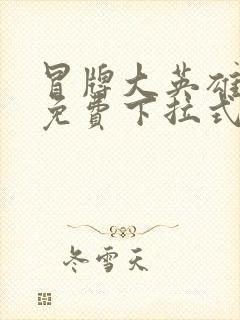 冒牌大英雄
免費下拉式
冬雪天